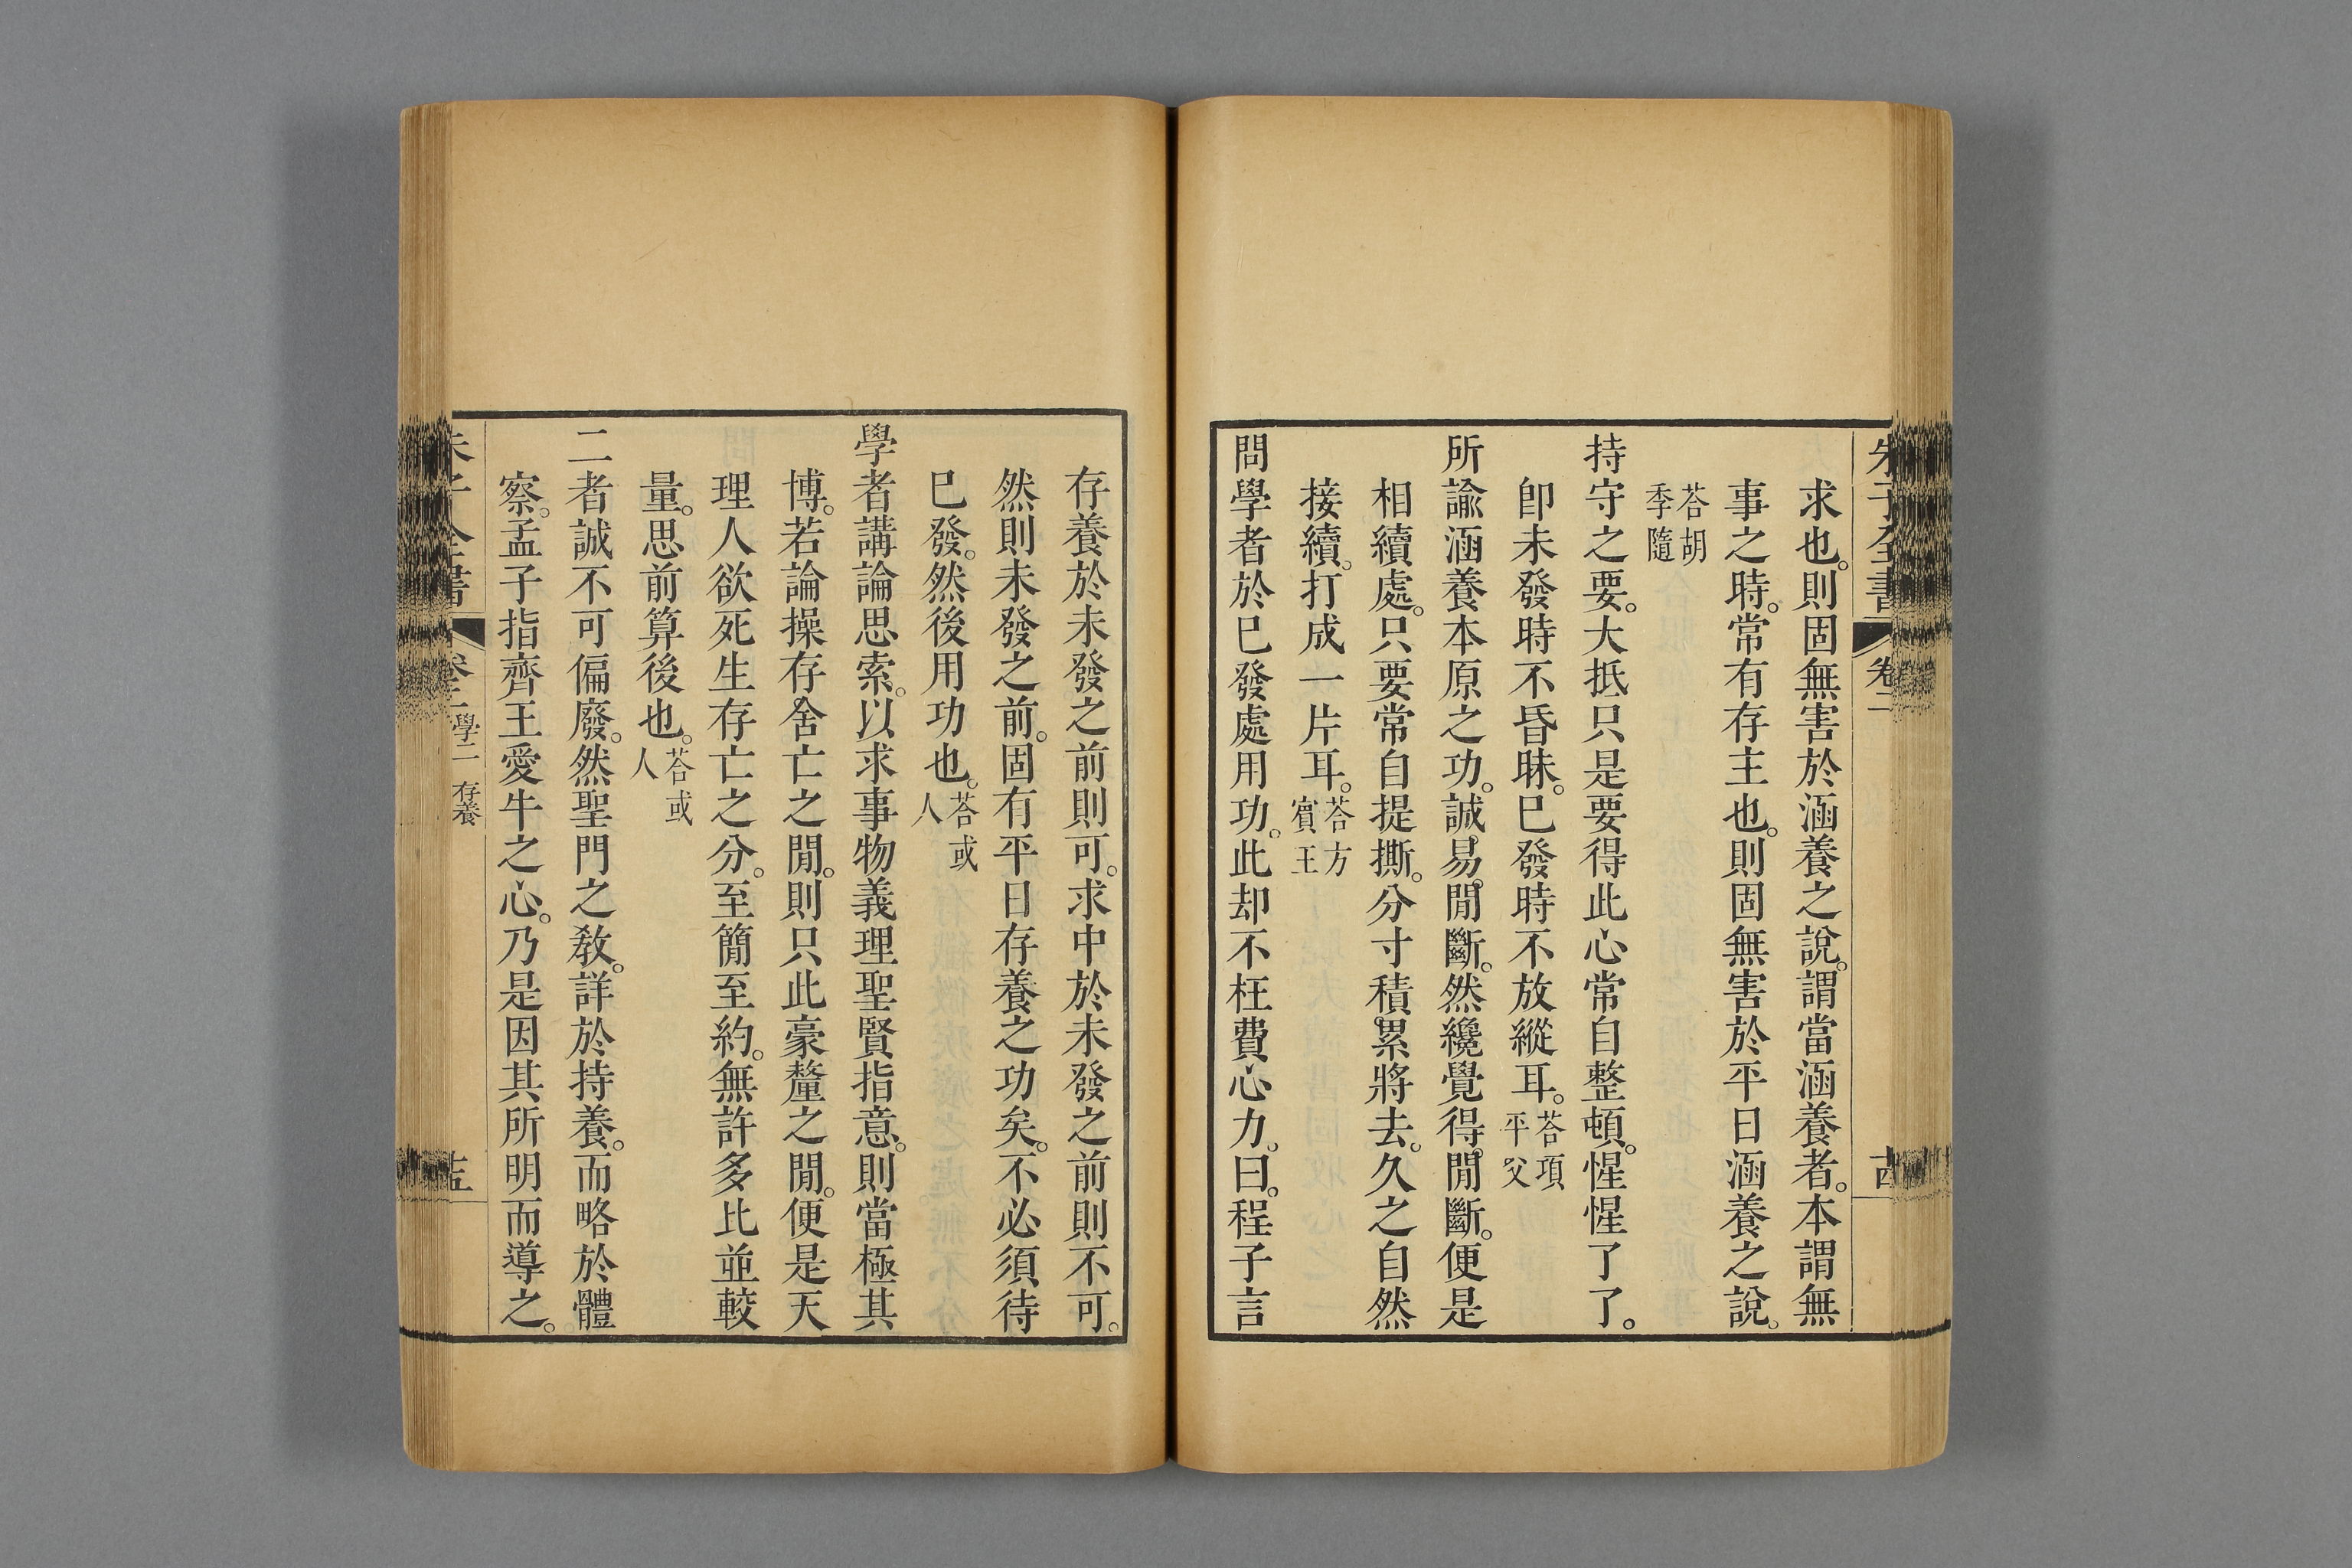 朱子全書 卷二
求也。則固無害於涵養之說。謂當涵養者。本謂無
事之時。常有存主也。則固無害於平日涵養之說。
荅胡
季隨
持守之要。大抵只是要得此心常自整頓。惺惺了了。
卽未發時不昏昧。已發時不放縱耳。荅項
平父
所諭涵養本原之功。誠易閒斷。然纔覺得閒斷。便是
相續處。只要常自提撕。分寸積累將去。久之自然
接續。打成一片耳。荅方
賓王
問學者於已發處用功。此却不枉費心力。曰。程子言
存養於未發之前則可。求中於未發之前則不可。
然則未發之前。固有平日存養之功矣。不必須待
已發。然後用功也。荅或
人
學者講論思索。以求事物義理聖賢指意。則當極其
博。若論操存舍亡之閒。則只此豪釐之閒。便是天
理人欲死生存亡之分。至簡至約。無許多比並較
量。思前算後也。荅或
人
二者誠不可偏廢。然聖門之敎。詳於持養。而略於體
察。孟子指齊王愛牛之心。乃是因其所明而導之。
子全書 卷二 學二 存養